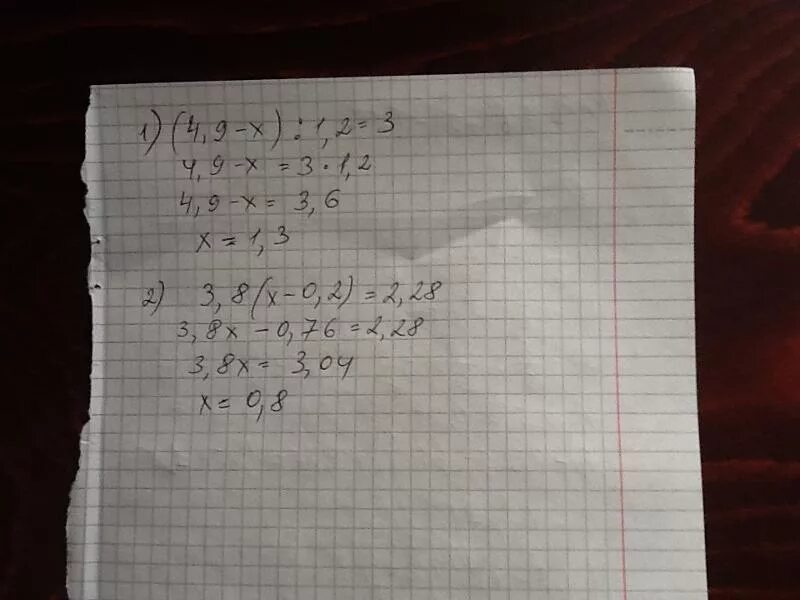 1) (4,9-x) : 1,2 = 3
4,9-x = 3 · 1,2
4,9-x = 3,6
x = 1,3
2) 3,8(x-0,2) = 2,28
3,8x - 0,76 = 2,28
3,8x = 3,04
x = 0,8